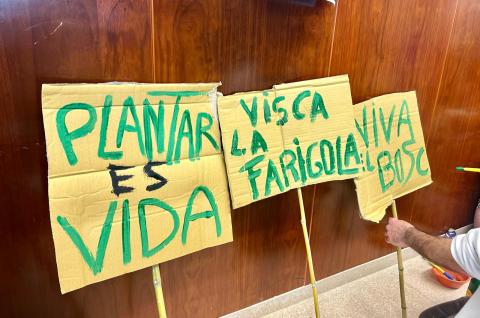 PLANTAR
ES
VIDA
VISCA
LA
FARIGOLA
VIVA
EL
BOSC